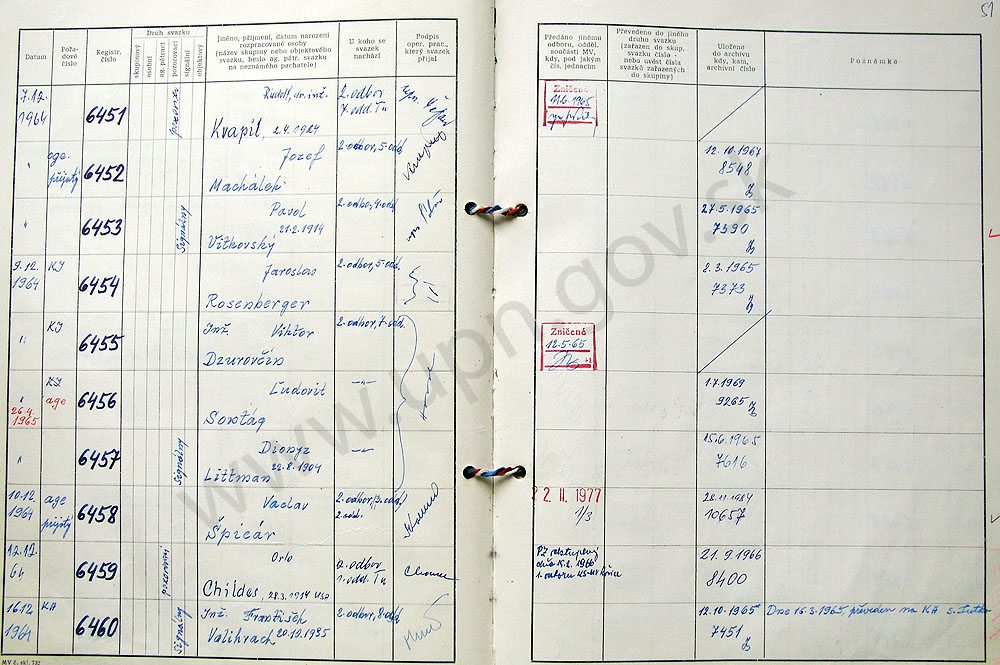 51
Datum
Pořadové číslo
Registr. číslo
Druh svazku
skupinový
osobní
ag. pátrací
pozorovací
signální
objektový
Jméno, příjmení, datum narození
rozpracované osoby
(název skupiny nebo objektového
svazku, heslo ag. pátr. svazku
na neznámého pachatele)
U koho se
svazek
nachází
Podpis
oper. prac.,
který svazek
přijal
Předáno jinému
odboru, odděl.
součásti MV,
kdy, pod jakým
čís. jednacím
Převedeno do jiného
druhu svazku
(zařazen do skup.
svazku číslo –
nebo uvést čísla
svazků zařazených
do skupiny)
Uloženo
do archivu
kdy, kam,
archivní číslo
Poznámka
7.12.
1964
6451
Rudolf, dr. inž.
Kvapil, 2.4.1924
2. odbor
7. odd. Tn
Zničené
11.6.1965
"
age.
přijstý
6452
Jozef
Machálek
2. odbor, 5. odd.
12.10.1967
8548
"
6453
signálny
Pavol
21.2.1914
Vítkovský
2. odbor, 4. odd.
27.5.1965
7390
9.12.
1964
KI
6454
Jaroslav
Rosenberger
2. odbor, 5. odd.
8.3.1965
7373
"
KI
6455
Inž. Viktor
Dzurovčin
2. odbor, 7. odd.
Zničené
12.5.65
"
26.4.
1965
KI
age
6456
Ľudovit
Sontág
-"-
1.7.1969
9265
"
6457
signálny
Dionyz
22.8.1904
Littman
-"-
15.6.1965
7616
10.12.
1964
age
přijstý
6458
Vaclav
Špicár
2. odbor,
2. odd.
22. II. 1977
1/3
28.11.1984
10657
12.12.
64
6459
Orlo
Childes, 28.3.1914 USA
2. odbor
1. odd. Tn
21.9.1966
8400
16.12.
1964
KA
6460
signálny
Inž. František
Valihrach 20.10.1935
2. odbor, 8. odd.
12.10.1965
7451
Dne 16.3.1965, převeden na KA s.
MV č. skl. 732
www.upn.gov.sk